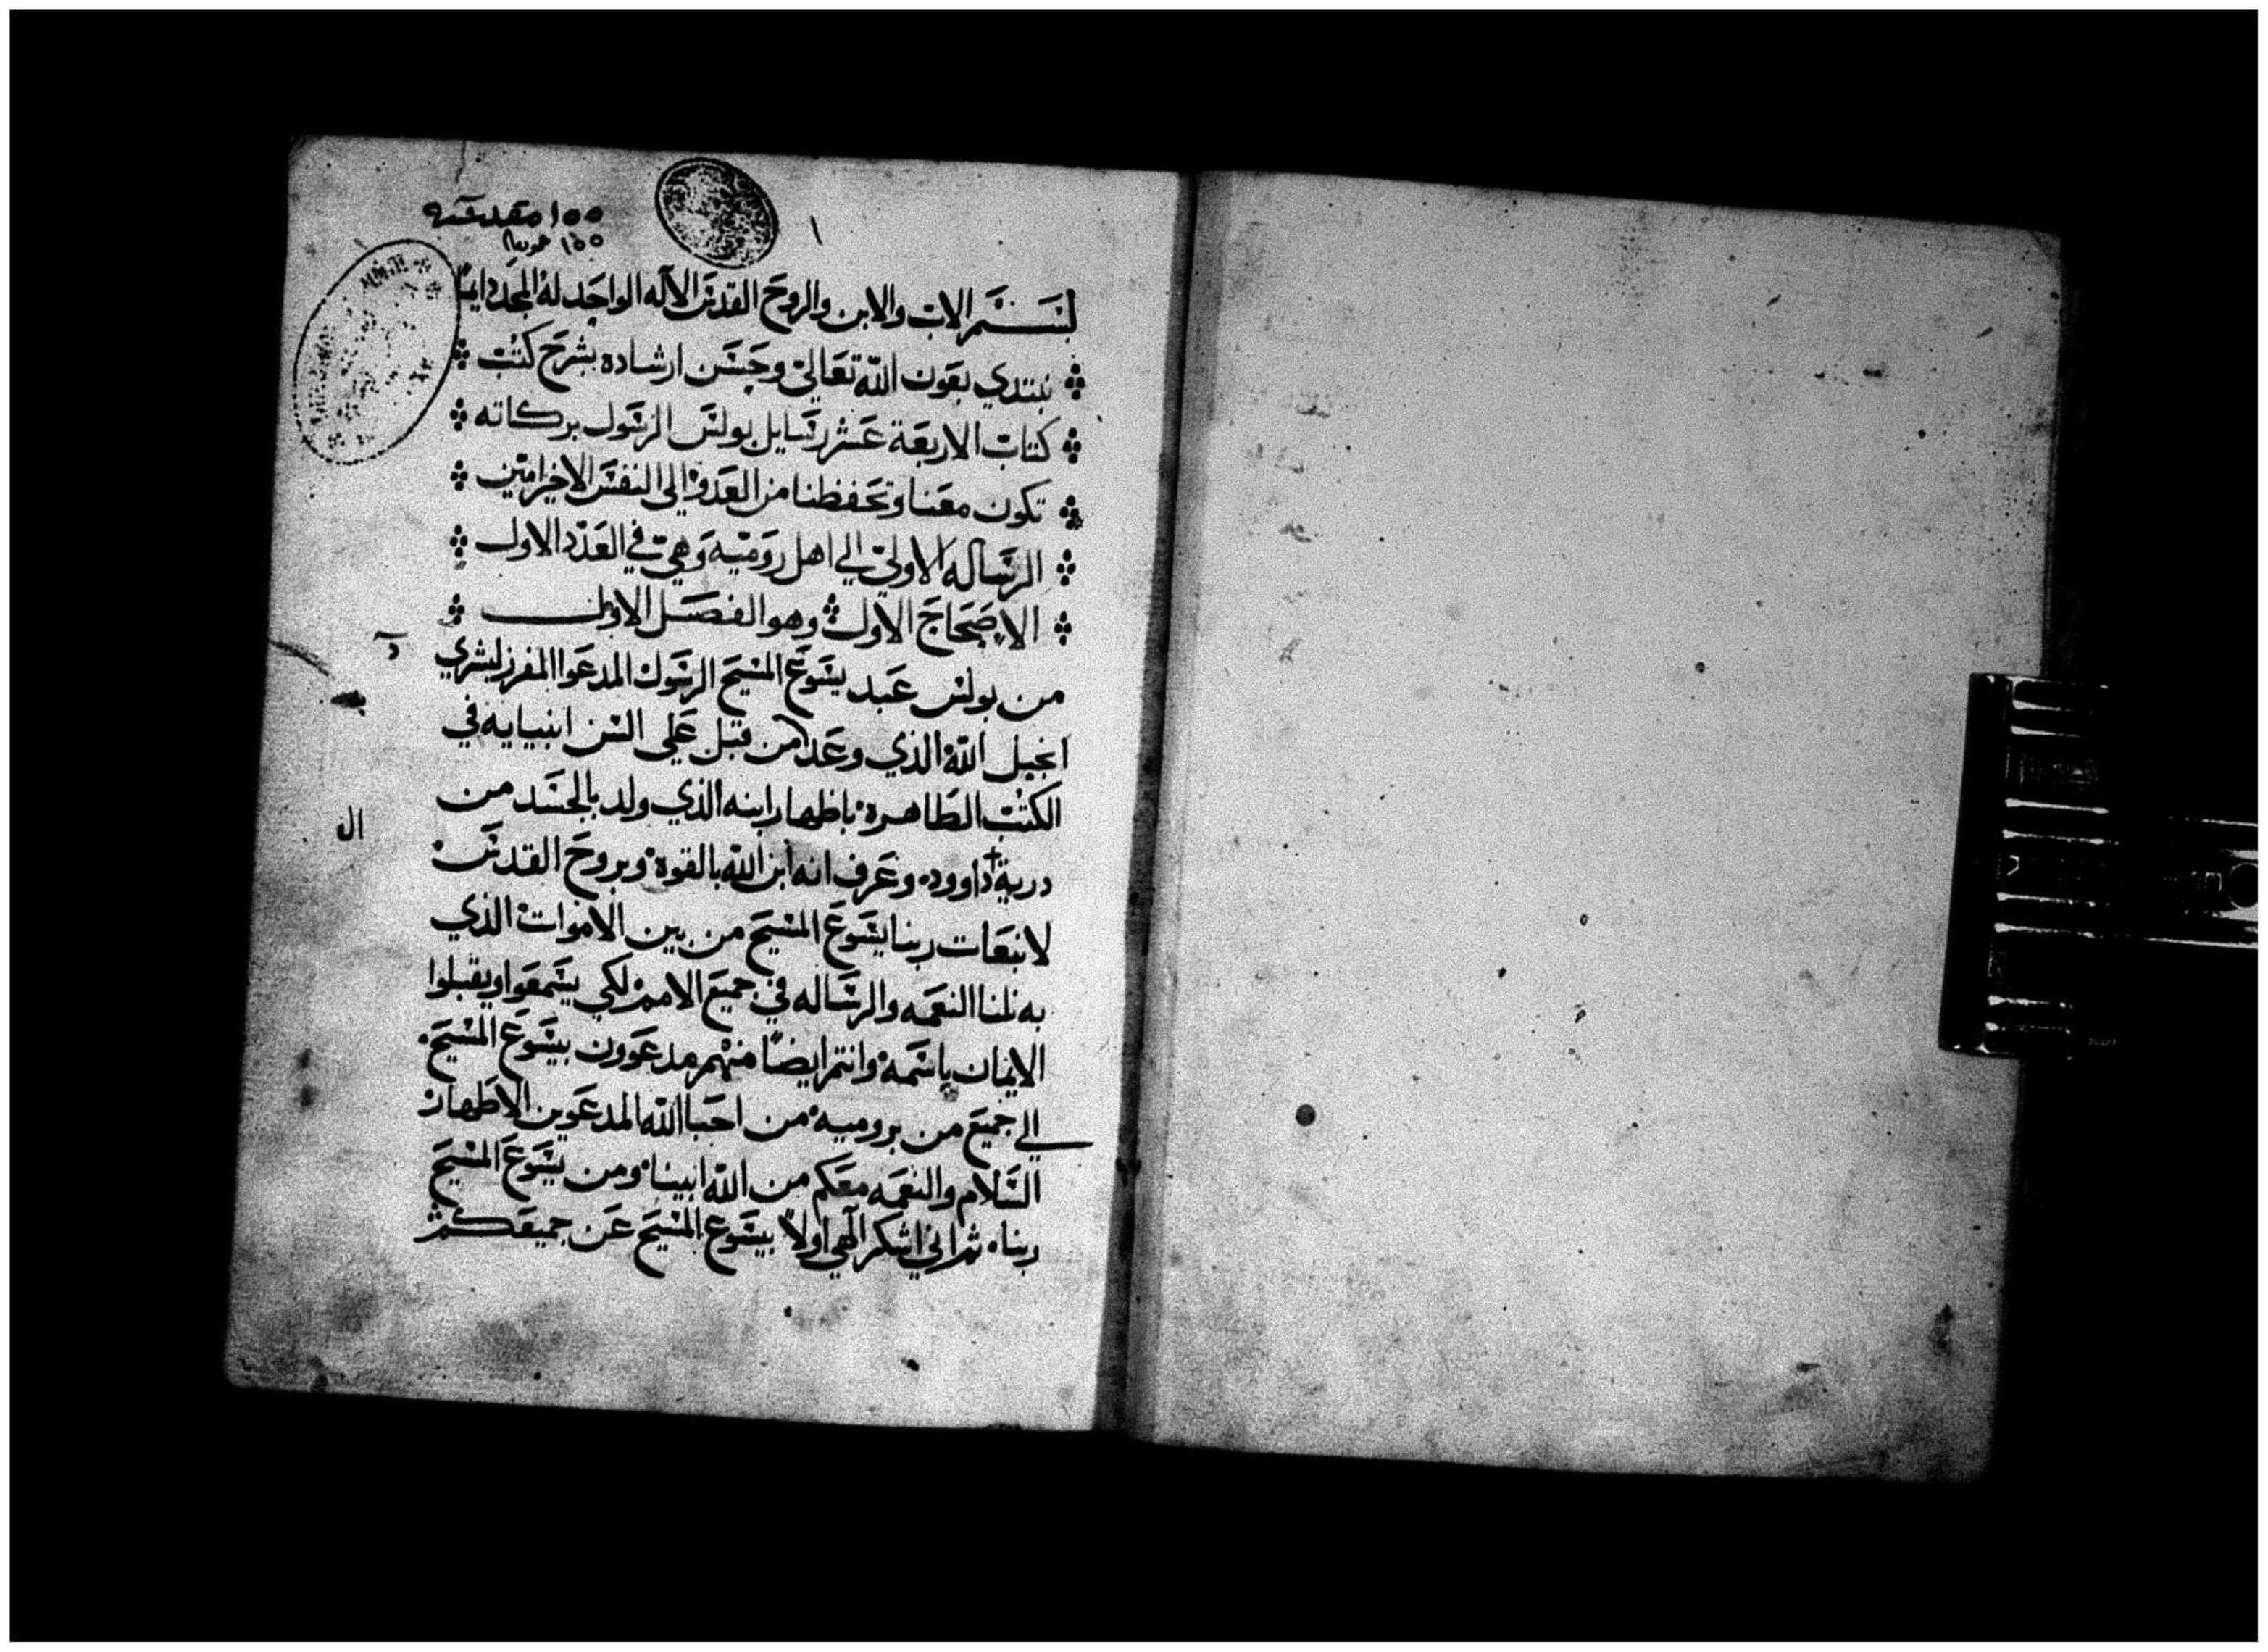 ١
١٥٥ مقدسه
١٥٥
بسم الاب والابن والروح القدس الآله الواحد له المجد دايمًا
نبتدي بعون الله تعالي وحسن ارشاده بشرح كتب
كتاب الاربعة عشر رسايل بولس الرسول بركاته
تكون معنا وتحفظنا من العدو الي النفس الاخير امين
الرساله الاولي الي اهل روميه وهي في العدد الاول
الاصحاح الاول وهو الفصل الاول
من بولس عبد يسوع المسيح الرسول المدعوا المفرز لبشري
انجيل الله الذي وعد من قبل علي السن انبيايه في
الكتب الطاهرة باظهار ابنه الذي ولد بالجسد من
درية داوود وعرف انه ابن الله بالقوة وبروح القدس
لانبعات ربنا يسوع المسيح من بين الاموات الذي
به نلنا النعمه والرساله في جميع الامم لكي يسمعوا ويقبلوا
الايمان باسمه وانتم ايضًا منهم مدعوون بيسوع المسيح
الي جميع من بروميه من احبا الله المدعوين الاطهار
السلام والنعمه معكم من الله ابينا ومن يسوع المسيح
ربنا ثم اني اشكر آلهي اولاً بيسوع المسيح عن جميعكم
ال